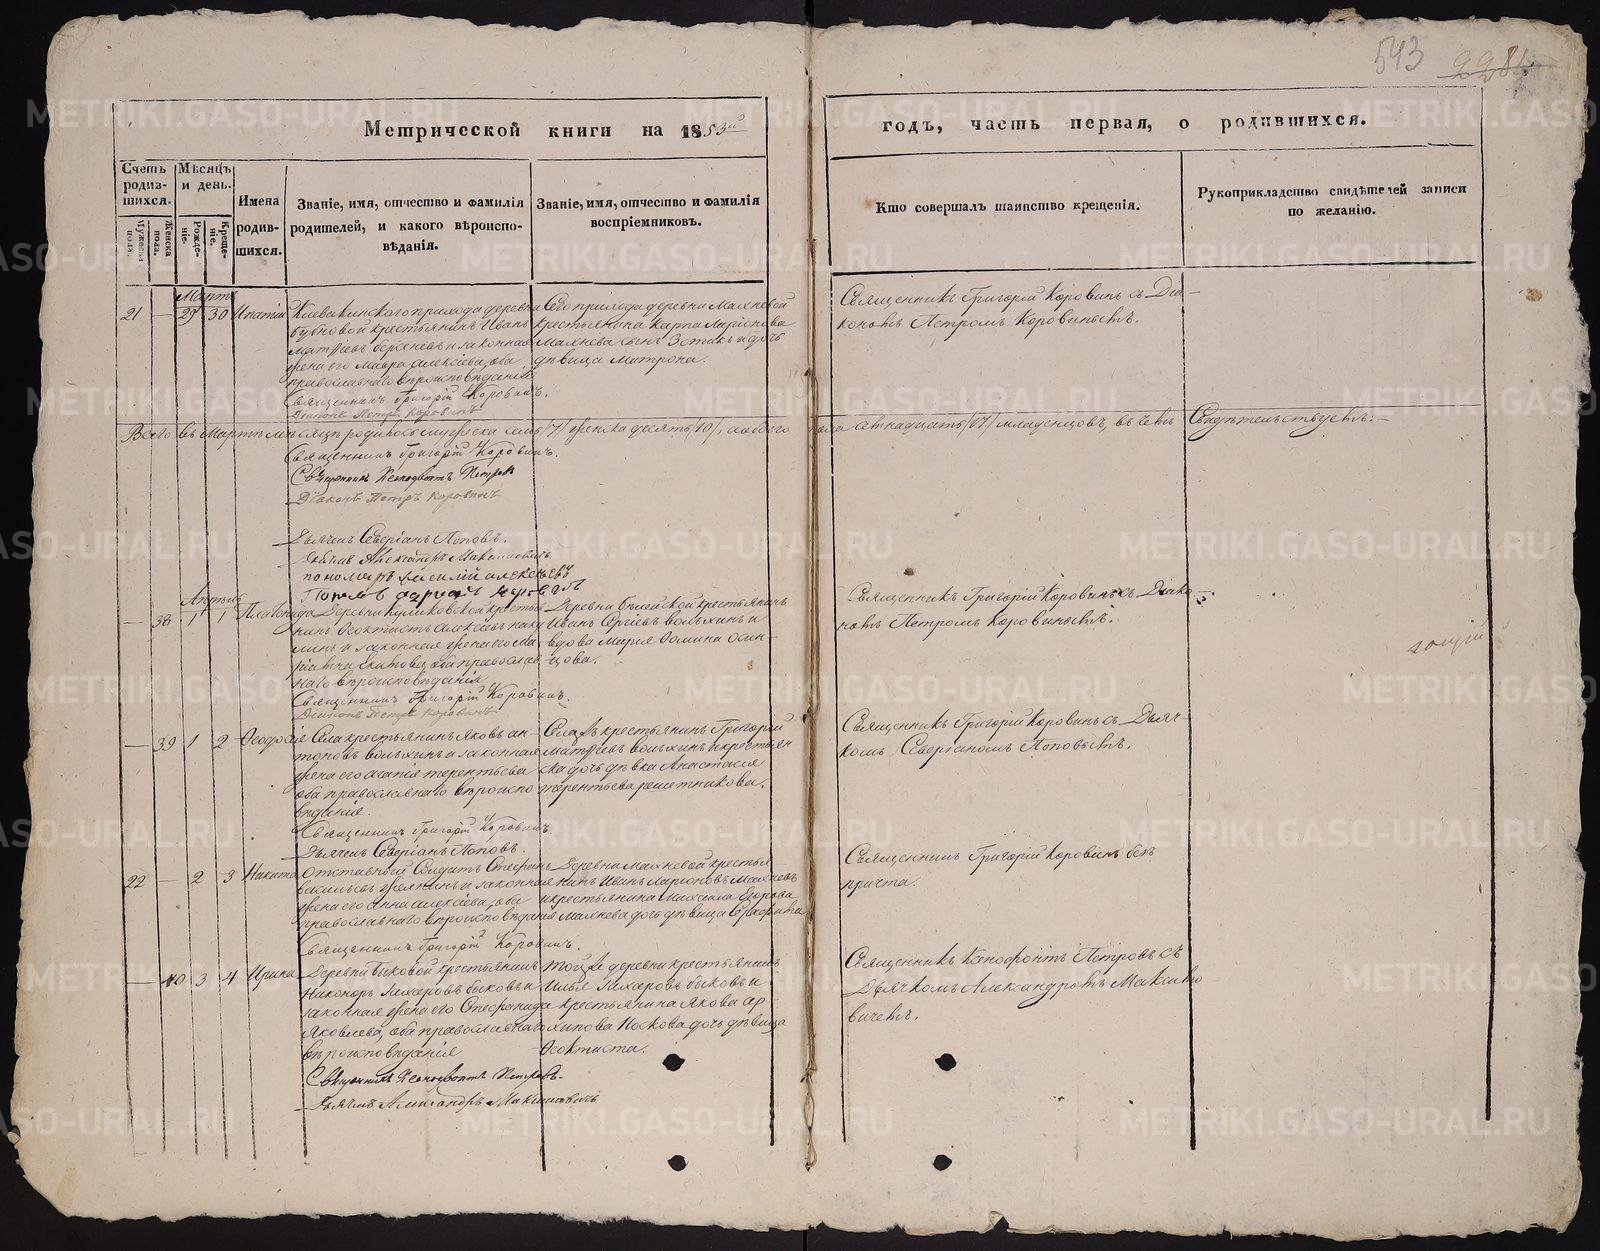 543
2281.
Метрической книги на 1853й
годъ, часть первая, о родившихся.
Счетъ родив-
шихся.
Мужеска пола.
Женска пола.
Мѣсяцъ и день.
Рожде-
ніе.
Креще-
ніе.
Имена
родив-
шихся.
Званіе, имя, отчество и фамилія
родителей, и какого вѣроиспо-
вѣданія.
Званіе, имя, отчество и фамилія
воспріемниковъ.
Кто совершалъ таинство крещенія.
Рукоприкладство свидѣтелей записи
по желанію.
Мартъ
21 — 29 30 Ипатій
прихода деревни
крестьянинъ Иванъ
Матѳѣевъ и законная
жена его Мавра Алексѣева, оба
православнаго вѣроисповѣданія
Священникъ Григорій Коровинъ.
Діаконъ Петръ Коровинъ
Сего прихода деревни Махневой
крестьянина Карпа Ларіонова
Махнева сынъ Зотикъ и дочь
дѣвица Матрона.
Священникъ Григорій Коровинъ съ Діа-
кономъ Петромъ Коровинымъ.
Всего въ Мартѣ мѣсяцѣ родилось мужеска семь /7/ женска десять /10/, а обоего пола семнадцать /17/ младенцовъ, въ чемъ
Свидѣтельствуемъ:—
Священникъ Григорій Коровинъ.
Священникъ Ксенофонтъ Петровъ
Діаконъ Петръ Коровинъ
Дьячекъ Северіанъ Поповъ.
Дьячекъ Александръ Максимовичъ
пономарь Василій Алексѣевъ
Апрѣль
— 38 1 1 Платонида
Деревни Куликовской крестья-
нинъ Ѳеоктистъ Алексѣевъ
и законная жена его
оба православ-
наго вѣроисповѣданія
Священникъ Григорій Коровинъ.
Діаконъ Петръ Коровинъ
Деревни крестьянинъ
Иванъ Сергіевъ Волыхинъ и
вдова Марія Ѳомина Осин-
цова.
Священникъ Григорій Коровинъ съ Діако-
номъ Петромъ Коровинымъ.
— 39 1 2 Ѳеодосія
Села крестьянинъ Яковъ Ан-
тоновъ Волыхинъ и законная
жена его Агапія Терентьева
оба православнаго вѣроиспо-
вѣданія.
Священникъ Григорій Коровинъ.
Дьячекъ Северіанъ Поповъ.
крестьянинъ Григорій
Матѳѣевъ Волыхинъ и крестьян
ска дочь дѣвка Анастасія
Терентьева Решетникова.
Священникъ Григорій Коровинъ съ Дьяч-
комъ Северіаномъ Поповымъ.
22 — 2 3 Никита
Отставный Солдатъ Стефанъ
Васильевъ и законная
жена его Анна Алексѣева, оба
православнаго вѣроисповѣданія
Священникъ Григорій Коровинъ.
Деревни Махневой крестья-
нинъ Иванъ Ларіоновъ Махневъ
и крестьянина Михаила Егорова
Махнева дочь дѣвица
Священникъ Григорій Коровинъ безъ
причта.
— 40 3 4 Ирина
Деревни Быковой крестьянинъ
Никоноръ Захаровъ Быковъ и
законная жена его Стефанида
Яковлева, оба православнаго
вѣроисповѣданія
Священникъ Ксенофонтъ Петровъ
Дьячекъ Александръ Максимовичъ
Той же деревни крестьянинъ
Илья Захаровъ Быковъ и
крестьянина Якова Ар
хипова Носкова дочь дѣвица
Ѳеоктиста.
Священникъ Ксенофонтъ Петровъ съ
Дьячкомъ Александромъ Максимо
вичемъ.
METRIKI.GASO-URAL.RU